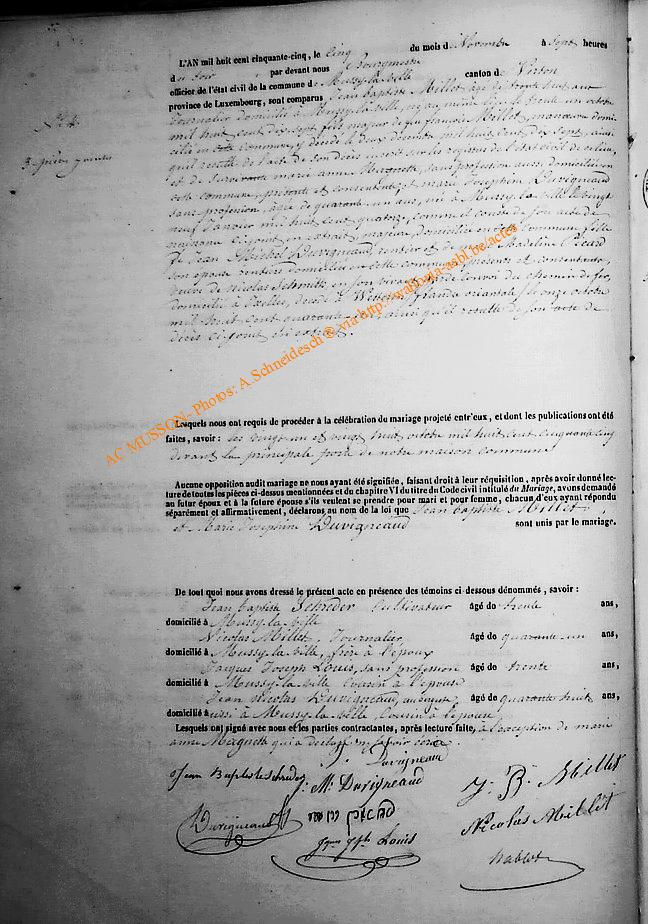 L'AN mil huit cent cinquante-cinq, le cinq du mois de Novembre à sept heures
du soir, par devant nous Bourgmestre
officier de l'état civil de la commune de Mussy-la-ville canton de Virton
province de Luxembourg, sont comparus Jean baptiste Millet, âgé de trente huit ans
journalier domicilié à Mussy-la-ville, né au même lieu le trente un octobre
mil huit cent dix sept, fils majeur de feu françois Millet, manœuvre domi
cilié en cette commune, y décédé le deux décembre mil huit cent dix sept, ainsi
qu'il resulte de l'acte de son décès inscrit sur les registres de l'état civil de ce lieu,
et de survivante marie anne Magnette, sans profession aussi domiciliée en
cette commune, présente et consentente, et marie Joséphine Duvigneaud
sans profession, âgée de quarante un ans, née à Mussy-la-ville le vingt
neuf Janvier mil huit cent quatorze, comme il conste de son acte de
naissance ci joint en extrait, majeure, domiciliée en cette commune, fille
de Jean Michel Duvigneaud, rentier et de Madeline Picard
son épouse rentiers domiciliés en cette commune, présents et consentents,
veuve de Nicolas Schmitz en son vivant garde convoi du chemin de fer,
domicilié à Ixelles, décédé à Wetteren (flandre orientale) le onze octobre
mil huit cent quarante ainsi qu'il resulte de son acte de
décès ci joint en extrait.
N°
3 pièces jointes
AC MUSSON- Photos: A.Schneidesch ® via http://arabaria-aabl.be/actes
Lesquels nous ont requis de procéder à la célébration du mariage projeté entr'eux, et dont les publications ont été
faites, savoir: les vingt un et vingt huit octobre mil huit cent cinquante cinq
devant la principale porte de notre maison commune
Aucune opposition audit mariage ne nous ayant été signifiée, faisant droit à leur réquisition, après avoir donné lec-
ture de toutes les pièces ci-dessus mentionnées et du chapitre VI du titre du Code civil intitulé du Mariage, avons demandé
au futur époux et à la future épouse s'ils veulent se prendre pour mari et pour femme, chacun d'eux ayant répondu
séparément et affirmativement, déclarons au nom de la loi que Jean baptiste Millet
et Marie Josephine Duvigneaud sont unis par le mariage.
De tout quoi nous avons dressé le présent acte en présence des témoins ci-dessous dénommés, savoir:
Jean baptiste Schréder Cultivateur âgé de trente ans,
domicilié à Mussy-la-ville
Nicolas Millet, Journalier âgé de quarante un ans,
domicilié à Mussy-la-ville, frère à l'époux
Jacques Joseph Louis, sans profession âgé de trente ans,
domicilié à Mussy-la-ville cousin à l'épouse
Jean Nicolas Duvigneaud, âgé de quarante huit ans,
domicilié aussi à Mussy-la-ville Cousin à l'épouse
Lesquels ont signé avec nous et les parties contractantes, après lecture faite, à l'exception de marie
anne Magnette qui a déclaré ne savoir écrire
J. Duvigneau
Jean Baptiste Schréder
J. M. Duvigneaud
J. B. Millet
Duvigneaud
Nicolas Millet
Jques Jph Louis